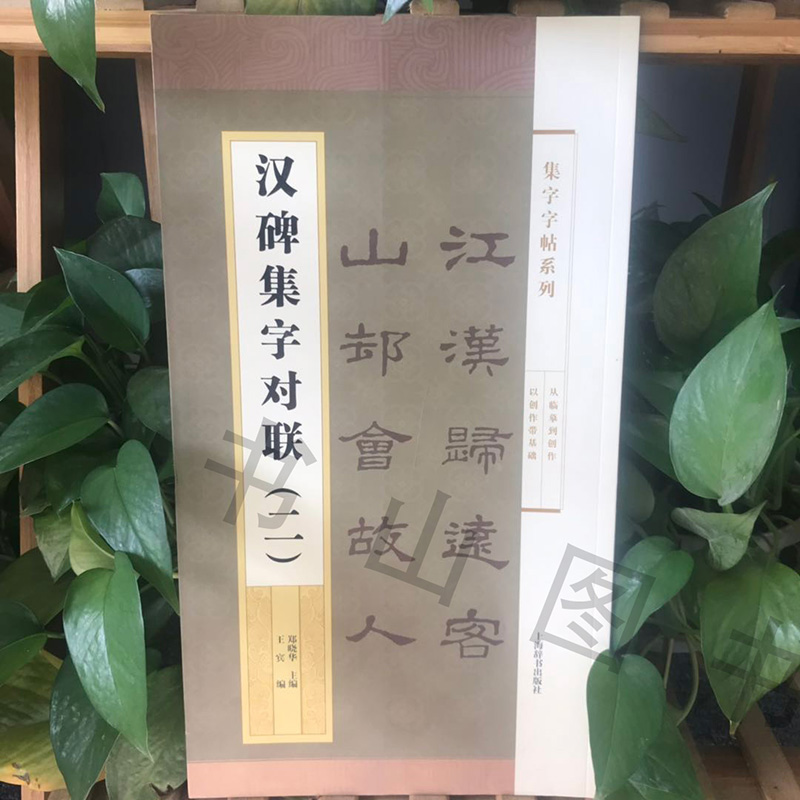 集字字帖系列
从临摹到创作
以创作带基础
上海辞书出版社
江漢歸遠客
山邨會故人
汉碑集字对联(二)
郑晓华 主编
王宾 编
书山图书